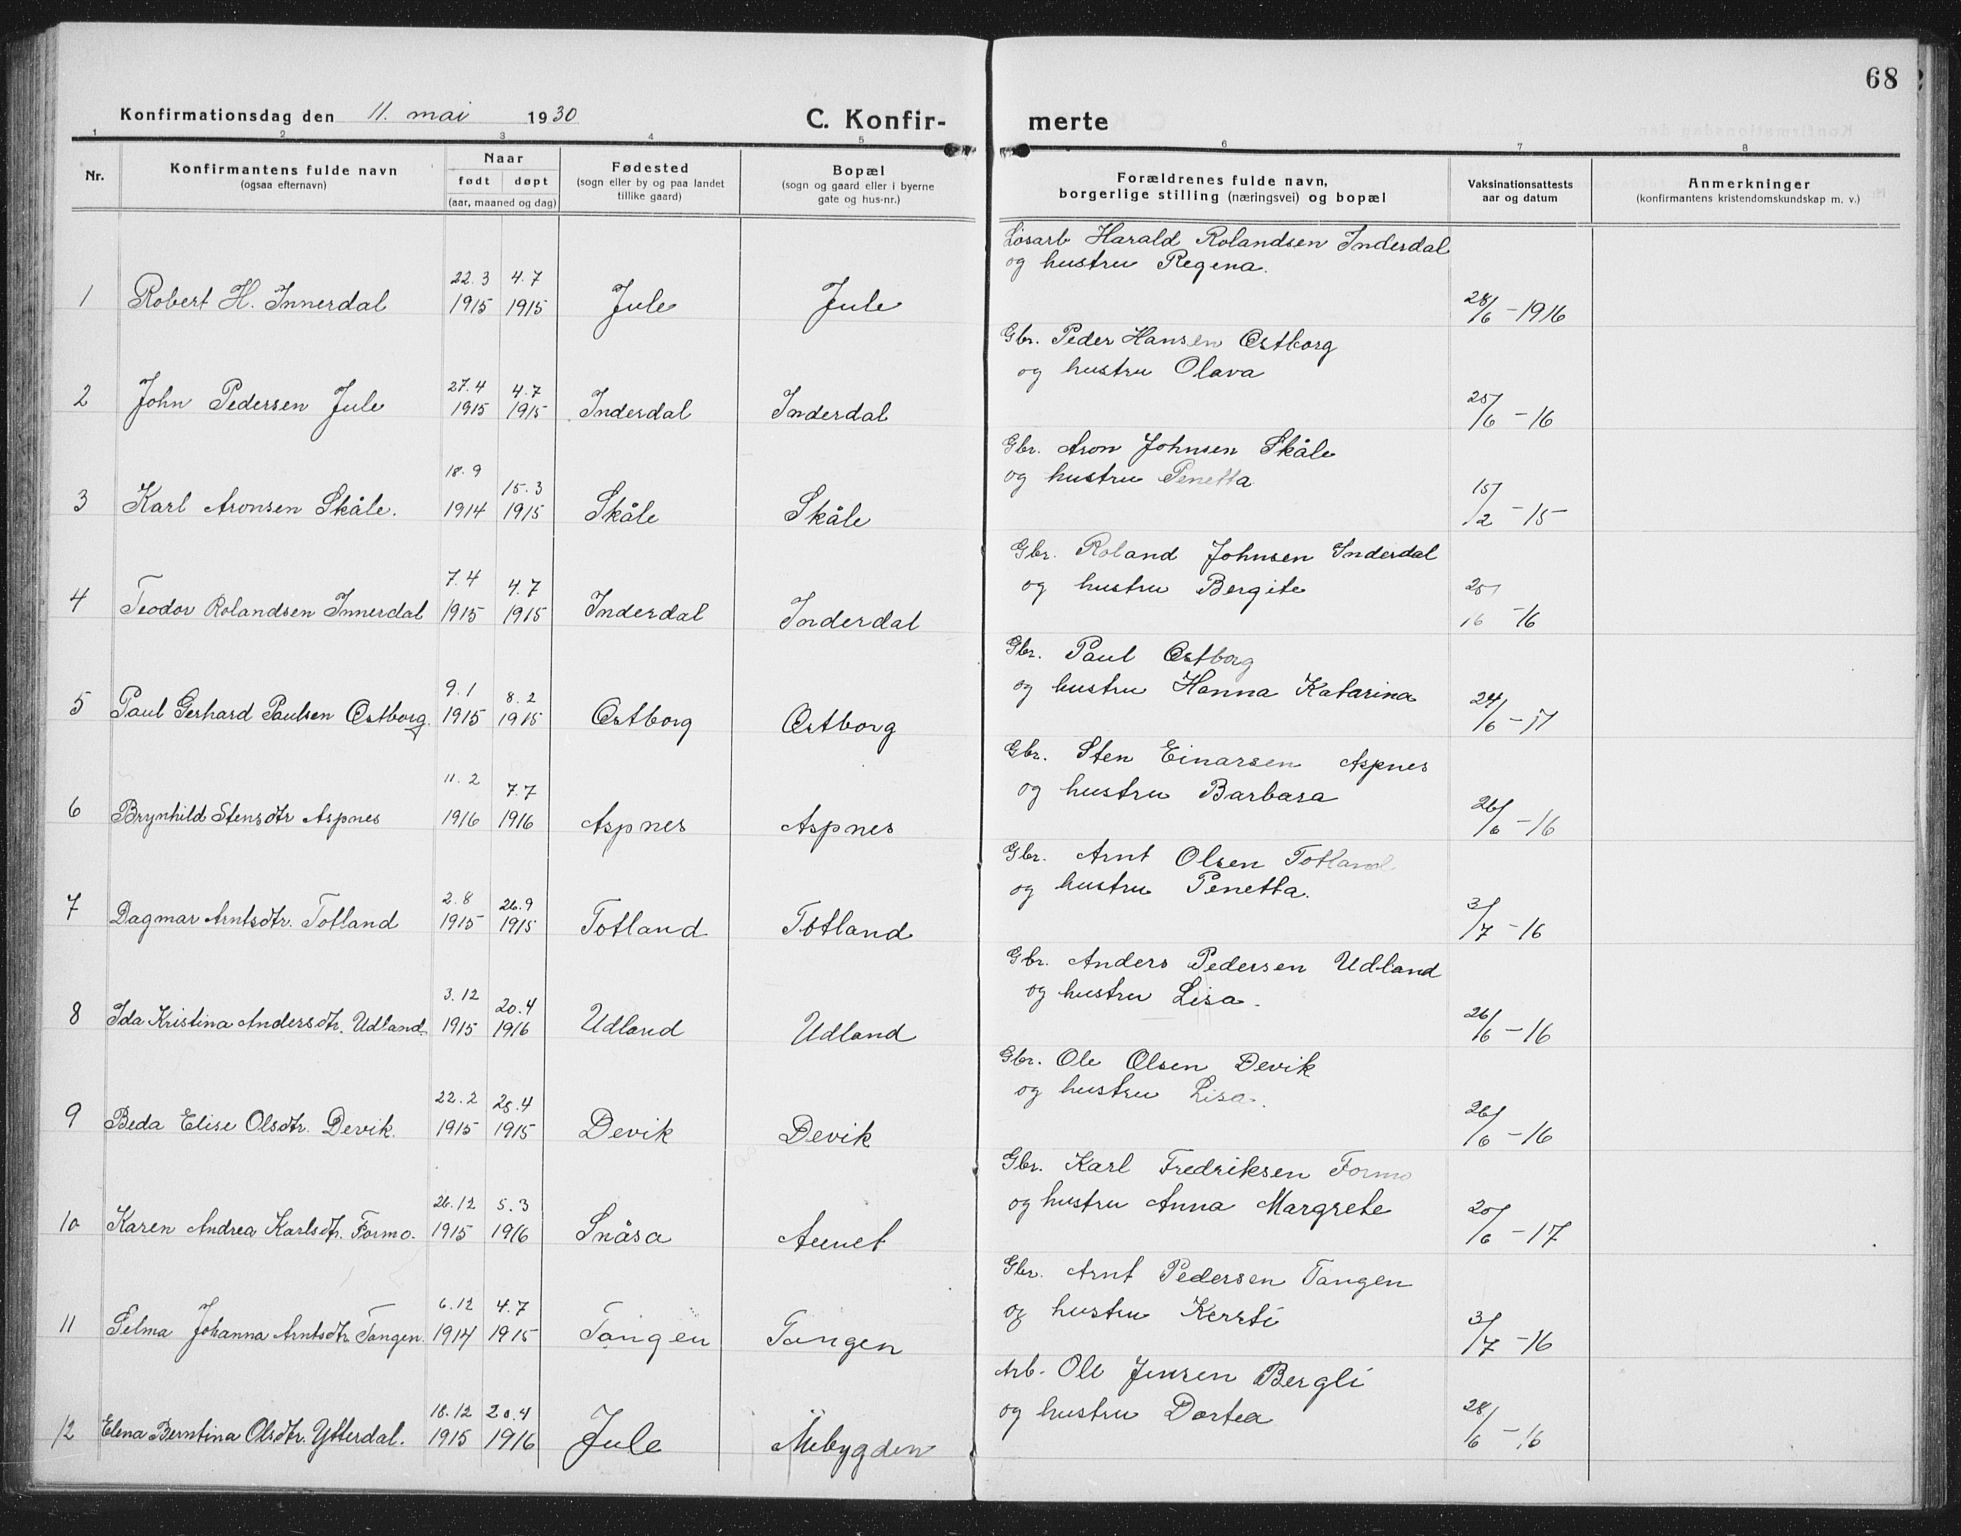 68
Konfirmationsdag den 11. mai 1930
C. Konfir-
merte
1 2 3 4 5 6 7 8
Nr.
Konfirmantens fulde navn
(ogsaa efternavn)
Naar
født døpt
(aar, maaned og dag)
Fødested
(sogn eller by og paa landet
tillike gaard)
Bopæl
(sogn og gaard eller i byerne
gate og hus-nr.)
Forældrenes fulde navn,
borgerlige stilling (næringsvei) og bopæl
Vaksinationsattests
aar og datum
Anmerkninger
(konfirmantens kristendomskundskap m. v.)
Løsarb Harald Rolandsen Inderdal
og hustru Regena.
22.3 4.7
1 Robert H. Innerdal 1915 1915 Jule Jule 28/6 - 1916
Gbr. Peder Hansen Østborg
og hustru Olava
27.4 4.7
2 John Pedersen Jule 1915 1915 Inderdal Inderdal 25/6 - 16
Gbr. Aron Johnsen Skåle
og hustru Penetta
18.9 15.3
3 Karl Aronsen Skåle. 1914 1915 Skåle Skåle 15/2 - 15
Gbr. Roland Johnsen Inderdal
og hustru Bergite
7.4 4.7
4 Teodor Rolandsen Innerdal 1915 1915 Inderdal Inderdal 25/6 - 16
Gbr. Paul Østborg
og hustru Hanna Katarina
9.1 8.2
5 Paul Gerhard Paulsen Østborg. 1915 1915 Østborg Østborg 24/6 - 17
Gbr. Sten Einarsen Aspnes
og hustru Barbara
11.2 7.7
6 Brynhild Stensdtr Aspnes 1916 1916 Aspnes Aspnes 26/6 - 16
Gbr. Arnt Olsen Totland
og hustru Penetta.
2.8 26.9
7 Dagmar Arntsdtr. Totland 1915 1915 Totland Totland 3/7 - 16
Gbr. Anders Pedersen Udland
og hustru Lisa.
3.12 20.4
8 Ida Kristina Andersdtr. Udland. 1915 1916 Udland Udland 26/6 - 16
Gbr. Ole Olsen Devik
og hustru Lisa.
22.2 25.4
9 Beda Elise Olsdtr. Devik. 1915 1915 Devik Devik 26/6 - 16
Gbr. Karl Fredriksen Formo
og hustru Anna Margrete
26.12 5.3
10 Karen Andrea Karlsdtr. Formo. 1915 1916 Snåsa Aunet 20/6 - 17
Gbr. Arnt Pedersen Tangen
og hustru Kerrti
6.12 4.7
11 Selma Johanna Arntsdtr. Tangen. 1914 1915 Tangen Tangen 3/7 - 16
Arb. Ole Jensen Bergli
og hustru Dortea
18.12 20.4
12 Elena Berntina Olsdtr. Ytterdal. 1915 1916 Jule Mebygden 28/6 - 16